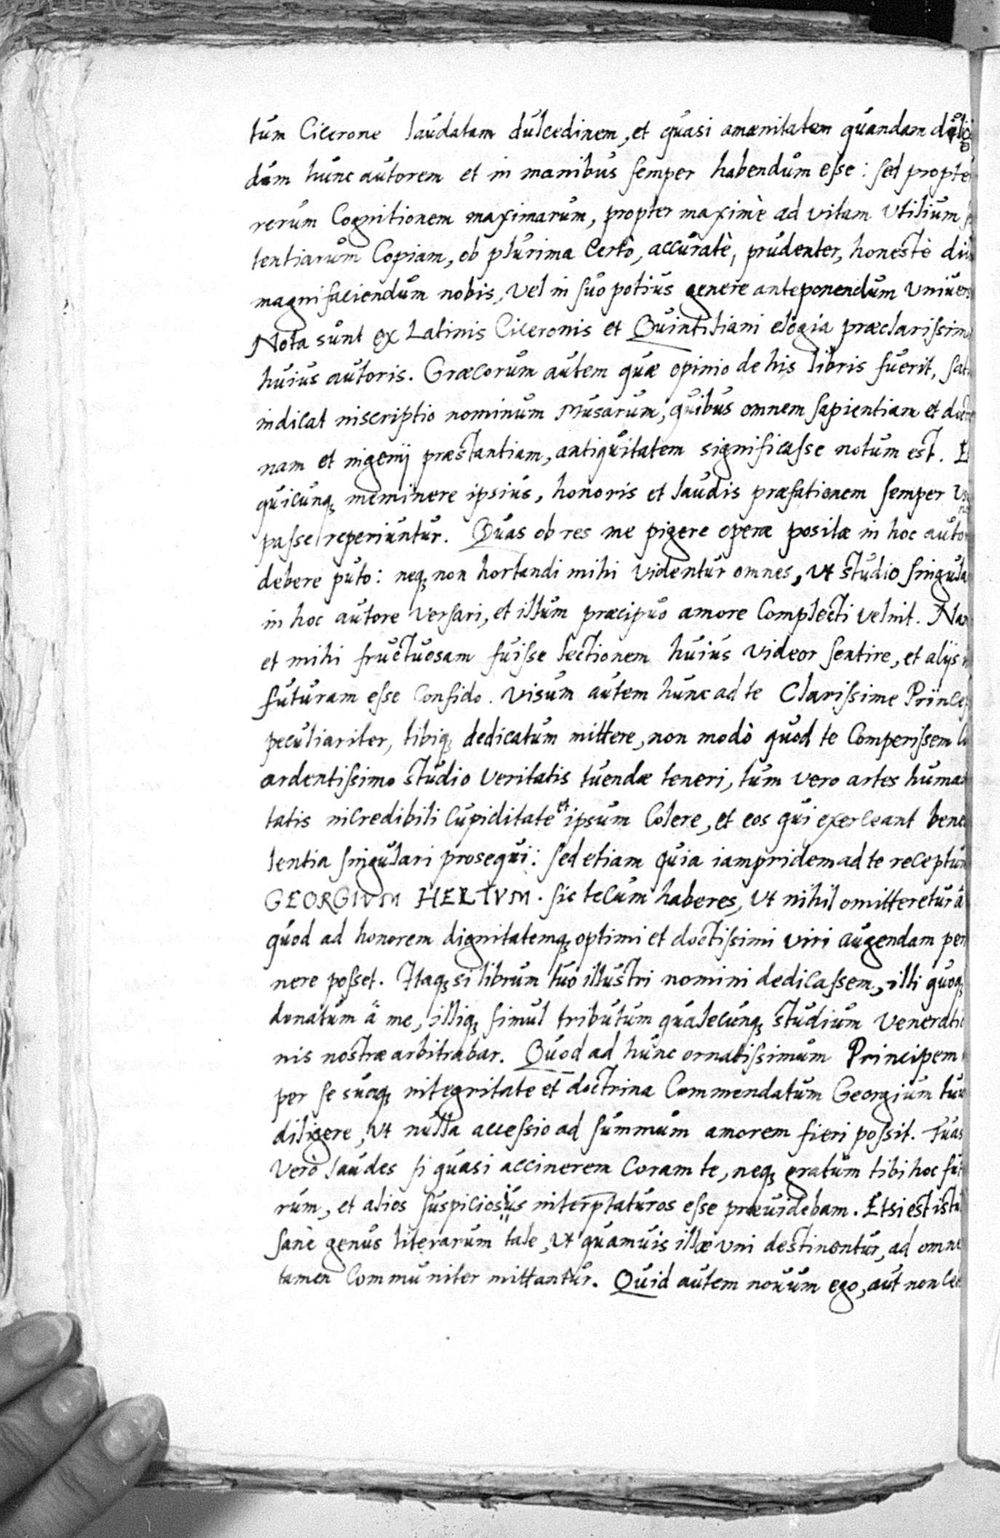 tum Cicerone laudatam dulcedinem, et quasi amœnitatem quandam
dam hunc autorem et in manibus semper habendum esse: sed propte
rerum Cognitionem maximarum, propter maximè ad vitam vtilium
tentiarum Copiam, ob plurima Certò, accuratè, prudenter, honestè di
magnifaciendum nobis, vel in suo potius genere anteponendum vniuer
Nota sunt ex Latinis Ciceronis et Quintiliani elogia præclarissim
huius autoris. Græcorum autem quæ opinio de his libris fuerit, sat
indicat inscriptio nominum Musarum, quibus omnem sapientiam et doct
nam et ingenij præstantiam, antiquitatem significasse notum est. E
quicunq meminere ipsius, honoris et laudis præfationem semper
passe reperiuntur. Quas ob res me pigere operæ positæ in hoc auto
debere puto: neq non hortandi mihi videntur omnes, vt studio singula
in hoc autore versari, et illum præcipuo amore Complecti velint. Na
et mihi fructuosam fuisse lectionem huius videor sentire, et alijs
futuram esse Confido. Visum autem hunc ad te Clarissime Prince
peculiariter, tibiq dedicatum mittere, non modò quod te Comperissem
ardentissimo studio veritatis tuendæ teneri, tum vero artes huma
tatis incredibili Cupiditate et ipsum Colere, et eos qui exerceant bene
lentia singulari prosequi: sed etiam quia iampridem ad te receptum
GEORGIVM HELTVM. sic tecum haberes, vt nihil omitteretur à
quod ad honorem dignitatemq optimi et doctissimi viri augendam per
nere posset. Itaq si librum tuo illustri nomini dedicassem, illi quoq
donatum à me, illiq simul tributum qualecunq studium Veneratio
nis nostræ arbitrabar. Quod ad hunc ornatissimum Principem
per se suaq integritate et doctrina Commendatum Georgium tum
diligere, vt nulla accessio ad summum amorem fieri possit. Tuas
Vero laudes si quasi accinerem Coram te, neq gratum tibi hoc fut
rum, et alios suspiciosius interptaturos esse præuidebam. Etsi est ist
sanè genus literarum tale, vt quamuis illæ vni destinentur, ad omne
tamen Communiter mittantur. Quid autem nouum ego, aut non